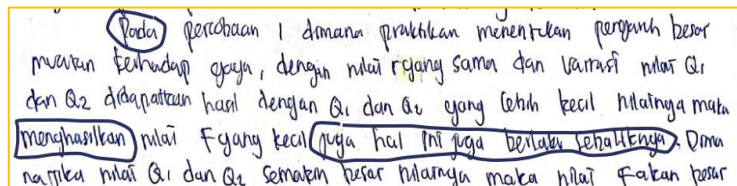 Pada percobaan 1 dimana praktikan menentukan pengaruh besar
muatan terhadap gaya, dengan nilai r yang sama dan variasi nilai Q1
dan Q2 didapatkan hasil dengan Q1 dan Q2 yang lebih kecil nilainya maka
menghasilkan nilai F yang kecil juga hal ini juga berlaku sebaliknya. Dima
na jika nilai Q1 dan Q2 semakin besar nilainya maka nilai F akan besar